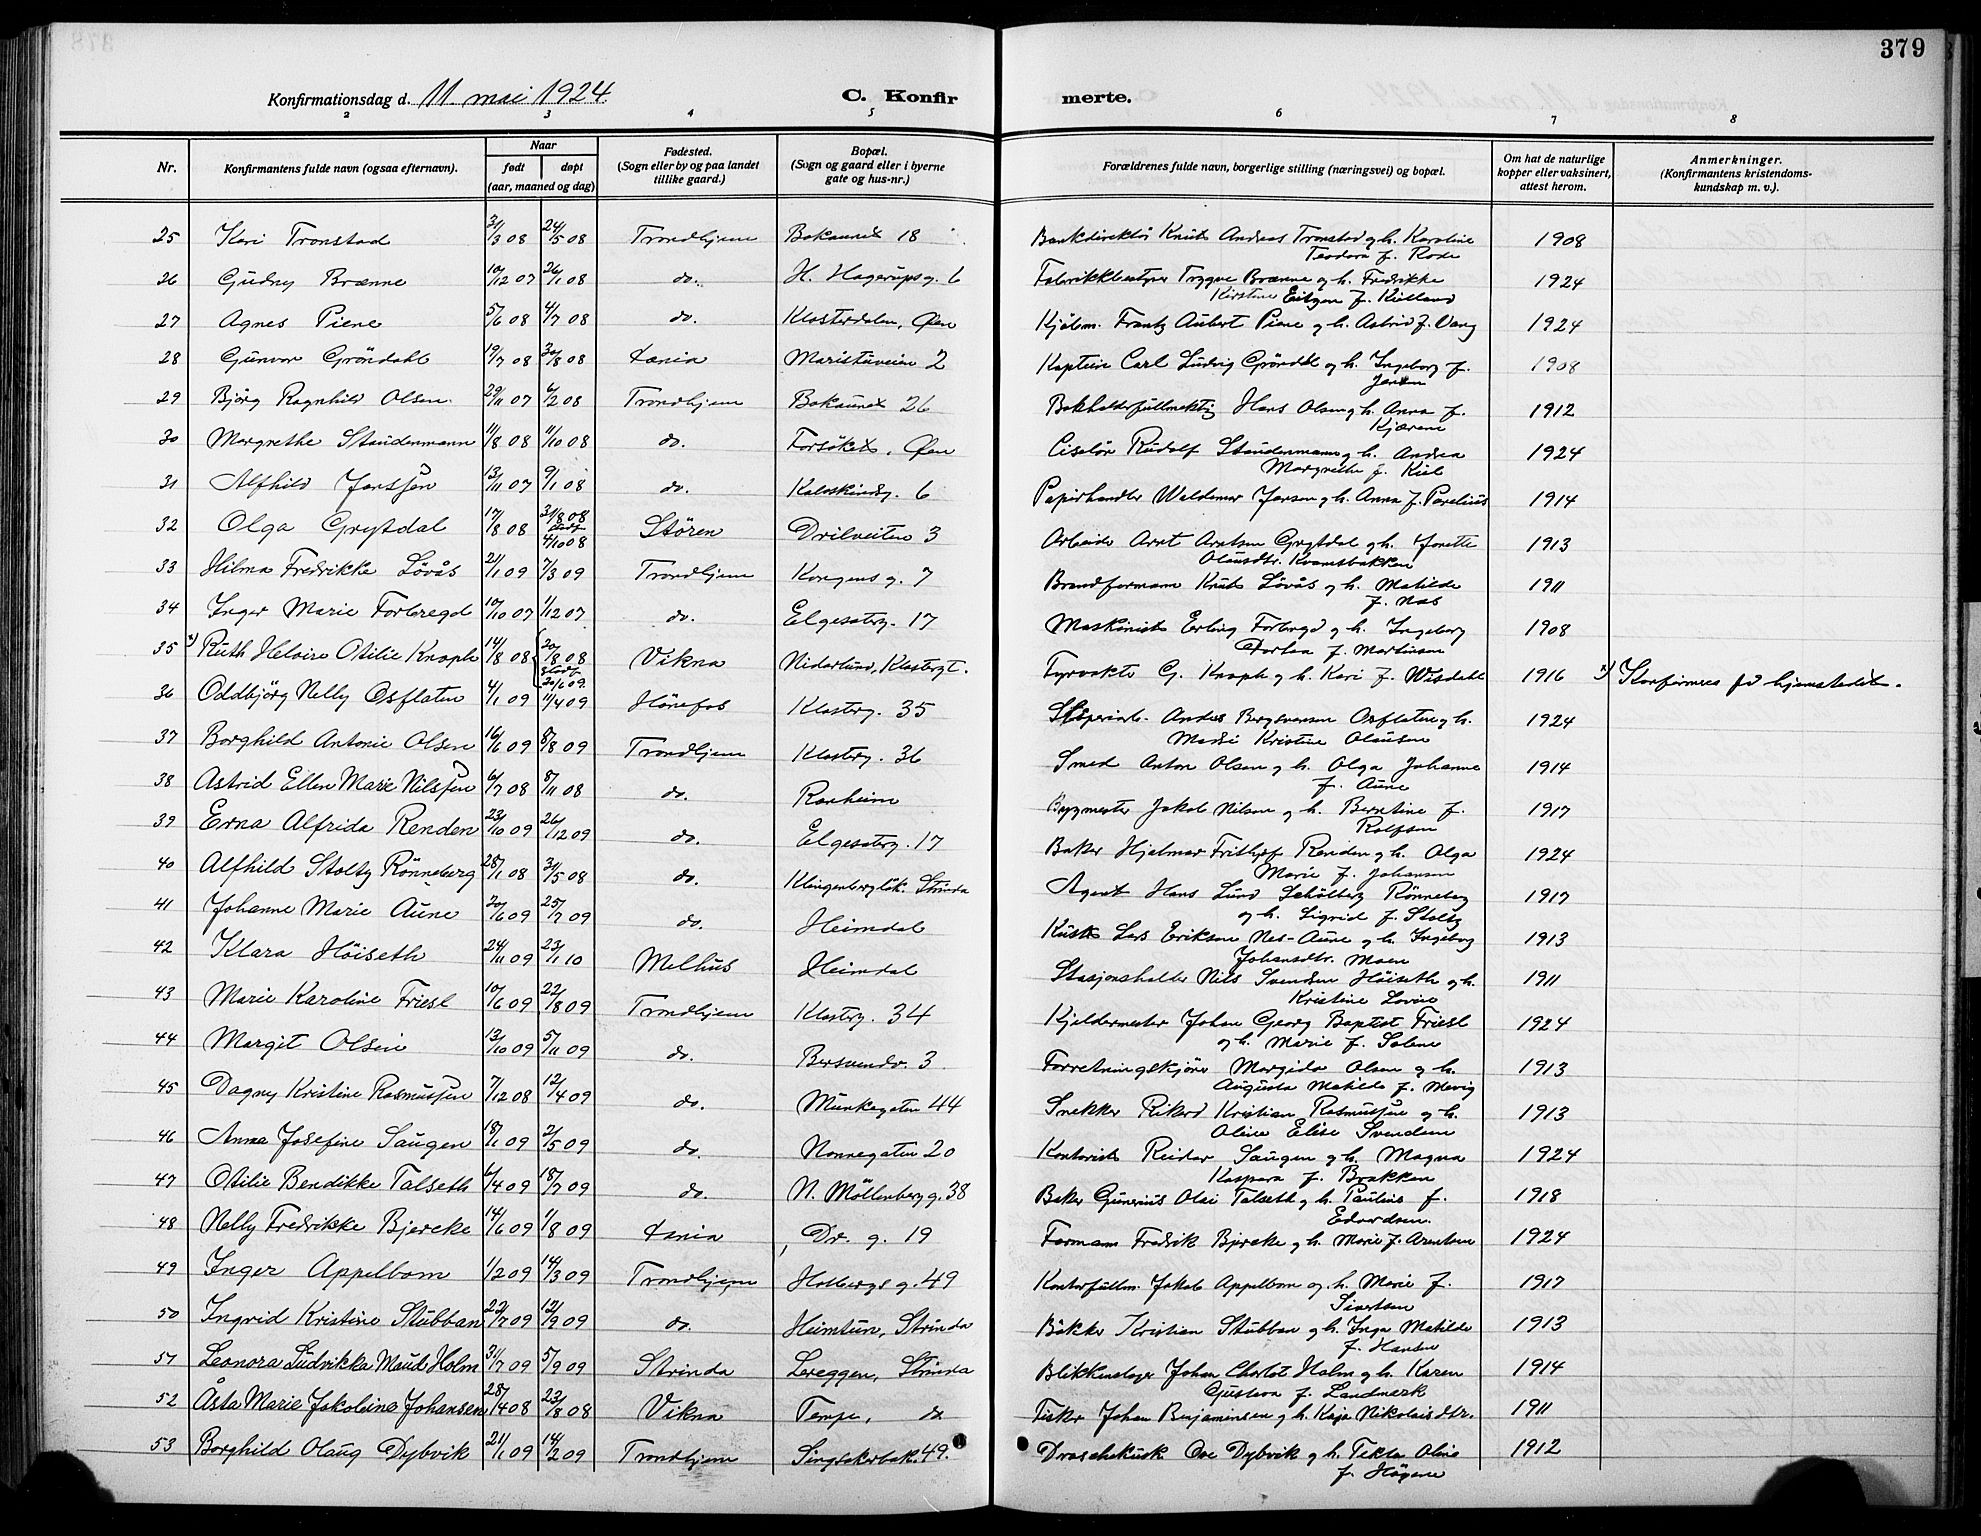 379
Konfirmationsdag d. 11. mai 1924.
C. Konfirmerte.
2 3 4 5 6 7 8
Nr.
Konfirmantens fulde navn (ogsaa efternavn).
Naar
født
døpt
(aar, maaned og dag)
Fødested.
(Sogn eller by og paa landet
tillike gaard.)
Bopæl.
(Sogn og gaard eller i byerne
gate og hus-nr.)
Forældrenes fulde navn, borgerlige stilling (næringsvei) og bopæl.
Om hat de naturlige
kopper eller vaksinert,
attest herom.
Anmerkninger.
(Konfirmantens kristendoms-
kundskap m. v.).
25 Kari Tronstad 31/3 08 24/5 08 Trondhjem Bakaunet 18 Bankdirektør Knut Andreas Tronstad og h. Karoline 1908
Teodora f. Rode
26 Gudny Brænne 10/12 07 26/1 08 do. H. Hagerupsg. 6 Fabrikkbestyrer Trygve Brænne og h. Fredrikke 1924
Kirstine Eitzen f. Kielland
27 Agnes Piene 5/6 08 4/7 08 do. Klosterdalen, Øen Kjøbm. Frantz Aubert Piene og h. Astrid f. Vang 1924
28 Gunvor Gröndahl 19/7 08 30/8 08 Xania Maristuveien 2 Kaptein Carl Ludvig Gröndahl og h. Ingeborg f. 1908
Jensen
29 Björg Ragnhild Olsen 29/11 07 6/2 08 Trondhjem Bakaunet 26 Bokholderfullmektig Hans Olsen og h. Anna f. 1912
Kjærem
30 Margrethe Staudenmann 11/8 08 11/10 08 do. Forsöket, Øen Ciselör Rudolf Staudenmann og h. Andrea 1924
Margrethe f. Kiel
31 Alfhild Janssen 13/11 07 9/1 08 do. Kalvskindsg. 6 Papirhandler Waldemar Jansen og h. Anna f. Parelius 1914
32 Olga Grytdal 17/8 08 31/8 08 Stören Drilveiten 3 Arbeider Arnt Arntsen Grytdal og h. Jonette 1913
stadf.
4/10 08
Olausdtr. Kvamsbakken
33 Hilma Fredrikke Lövås 21/1 09 7/3 09 Trondhjem Kongensg. 7 Brandformann Knut Lövås og h. Matilde 1911
f. Næs
34 Inger Marie Forbregd 10/10 07 1/12 07 do. Elgesæterg. 17 Maskinist Erling Forbregd og h. Ingeborg 1908
Dorthea f. Martinsen
35 x) Ruth Heloise Otilie Knoph 14/8 08 20/8 08 Vikna Nidarlund, Klostergt. Fyrvokter G. Knoph og h. Kari f. Wisdahl 1916 x) Konfirmeres på hjemstedet.
stadf.
20/6 09
36 Oddbjörg Nelly Osflaten 4/1 09 11/4 09 Hönefos Klosterg. 35 Anders Bergsvensen Osflaten og h. 1924
Marie Kristine Olausen
37 Borghild Antonie Olsen 16/6 09 8/8 09 Trondhjem Klosterg. 36 Smed Anton Olsen og h. Olga Johanne 1914
f. Aune
38 Astrid Ellen Marie Nilssen 6/7 08 8/11 08 do. Ranheim Bygmester Jakob Nilsen og h. Berntine f. 1917
Rolfsen
39 Erna Alfrida Renden 23/10 09 26/12 09 do. Elgesæterg. 17 Baker Hjalmar Frithjof Renden og h. Olga 1924
Marie f. Johansen
40 Alfhild Stoltz Rönneberg 28/1 08 31/5 08 do. Klingenberglök. Strinda Agent Hans Lund Schölberg Rönneberg 1917
og h. Sigrid f. Stoltz
41 Johanne Marie Aune 20/6 09 25/7 09 do. Heimdal Kusk Lars Eriksen Nes-Aune og h. Ingeborg 1913
Johansdtr. Moen
42 Klara Höiseth 24/11 09 23/1 10 Melhus Heimdal Stasjonsholder Nils Svendsen Höiseth og h. 1911
Kristine Lovise
43 Marie Karoline Friesl 10/6 09 22/8 09 Trondhjem Klosterg. 34 Kjeldermester Johan Georg Baptist Friesl 1924
og h. Marie f. Solem
44 Margit Olsen 13/10 09 5/11 09 do. Bersvendv. 3 Forretningskjörer Margido Olsen og h. 1913
Augusta Matilde f. Mevig
45 Dagny Kristine Rasmussen 7/12 08 12/4 09 do. Munkegaten 44 Snekker Rikard Kristian Rasmussen og h. 1913
Oline Elise Svendsen
46 Anna Josefine Saugen 18/1 09 2/5 09 do. Nonnegaten 20 Kontorist Reidar Saugen og h. Magna 1924
Kaspara f. Brækken
47 Otilie Bendikke Talseth 6/4 09 18/7 09 do. N. Möllenbergg. 38 Baker Gunerius Olai Talseth og h. Pauline f. 1918
Edvardsen.
48 Nelly Fredrikke Bjercke 14/6 09 1/8 09 Xania Dr. g. 19 Formann Fredrik Bjercke og h. Marie f. Arentsen 1924
49 Inger Appelbom 1/2 09 14/3 09 Trondhjem Holbergs g. 49 Kontorfullm. Jakob Appelbom og h. Marie f. 1917
Sivertsen
50 Ingrid Kristine Stubban 22/7 09 12/9 09 do. Heimtun, Strinda Bökker Kristian Stubban og h. Inga Matilde 1913
f. Hansen
51 Leonora Ludvikka Maud Holm 31/7 09 5/9 09 Strinda Lereggen, Strinda Blikkenslager Johan Charlot Holm og h. Karen 1914
Gustava f. Landmark
52 Åsta Marie Jakobine Johansen 28/4 08 23/8 08 Vikna Tempe, do Fisker Johan Benjaminsen og h. Kaja Nikolaisdtr. 1911
53 Borghild Olaug Dybvik 21/1 09 14/2 09 Trondhjem Singsakerbak. 49. Droschekusk Ove Dybvik og h. Tekla Oline 1912
f. Högene